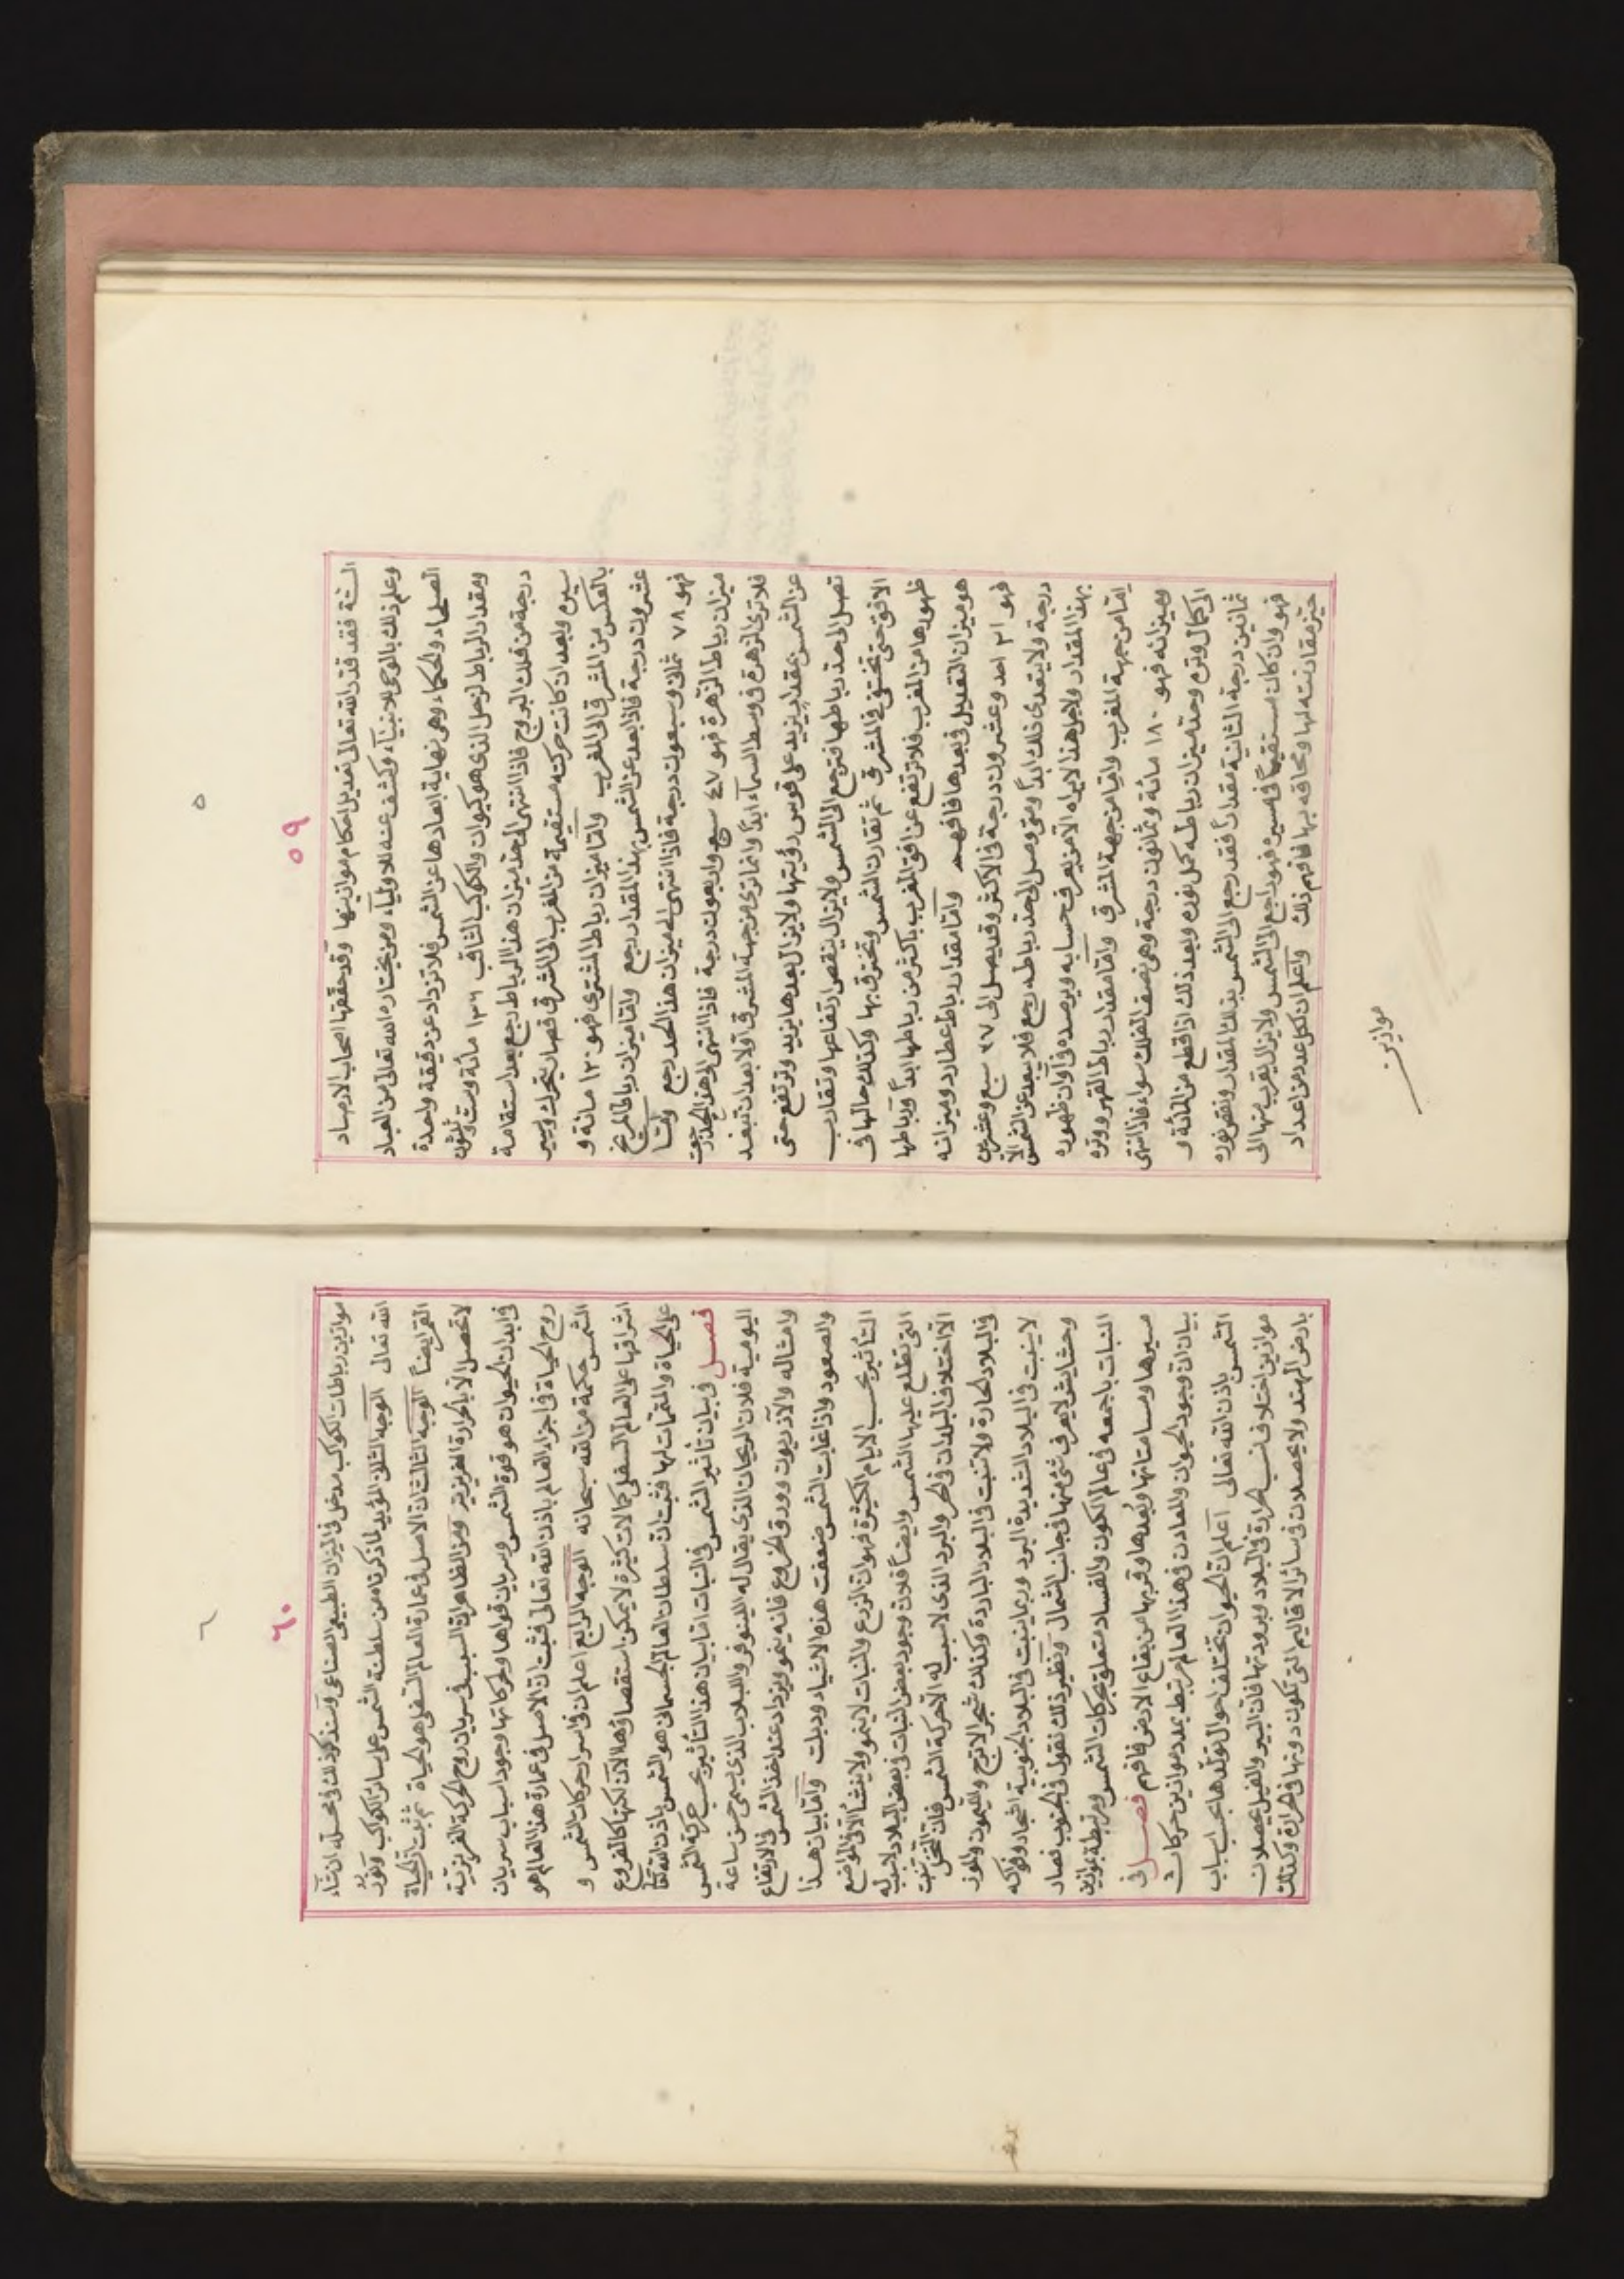 ٥
٥٩
الستة فقد قدر الله تعالى تعديل احكام موازينها وقد حققها اصحاب الارصاد
وعلم ذلك بالوحى للانبياء وكشف عنه للاولياء ومن يختاره الله تعالى من العباد
الصلحاء والحكماء وهى نهاية ابعادها عن الشمس فلا تزداد عن دقيقة واحدة
ومقدار الرباط لزحل الذى هو كيوان والكوكب الثاقب ١٣٦ مائة وست وثلثون
درجة من فلك البروج فاذا انتهى الى حد ميزان هذا الرباط رجع بعد استقامة
سيره وبعد ان كانت حركته مستقيمة من المغرب الى المشرق فصار يتحرك ويسير
بالعكس من المشرق الى المغرب واما ميزان رباط المشترى فهو ١٢٠ مائة و
عشرون درجة فاذا بعد عن الشمس بهذا المقدار رجع واما ميزان رباط المريخ
فهو ٧٨ ثمان وسبعون درجة فاذا انتهى الى ميزان هذا الحد رجع وامّا
ميزان رباط الزهرة فهو ٤٧ سبع واربعون درجة فاذا انتهى الى هذا الحد رجعت
فلا ترى الزهرة فى وسط السماء ابداً وانما ترى من جهة المشرق اولا بعد ان تبعد
عن الشمس بمقدار يزيد على قوس رؤيتها ولا يزال بعدها يزيد وترتفع حتى
تصل الى حد رباطها فترجع الى الشمس ولا يزال ينقص ارتفاعها وتقارب
الافق حتى تختفى فى المشرق ثم تقارن الشمس وتحترق بها وكذلك حالها فى
ظهورها من المغرب فلا ترتفع عن افق المغرب باكثر من رباطها ابداً ورباطها
هو ميزان التعديل فى بعدها فافهم وامّا مقدار رباط عطارد وميزانه
فهو ٢١ احد وعشرون درجة فى الاكثر وقد يصل الى ٢٧ سبع وعشرين
درجة ولا يتعدى ذلك ابداً ومتى وصل الى حد رباطه رجع فلا يبعد عن الشمس الّا
بهذا المقدار ولاجل هذا لا يراه الا من يعرف حسابه ويرصده فى اوان ظهوره
امّا من جهة المغرب وامّا من جهة المشرق وامّا مقدار رباط القمر ووتره
وميزانه فهو ١٨٠ مائة وثمانون درجة وهى نصف الفلك سواء فاذا انتهى
الى كمال وتره وحد ميزان رباطه كمل نوره وبعد ذلك اذا قطع من المائة و
ثمانين درجة الثانية مقداراً فقد رجع الى الشمس بذلك المقدار ونقص نوره
فهو وان كان مستقيماً فى مسيره فهو راجع الى الشمس ولا يزال يقرب منها الى
حيّز مقارنته لها ومحاقه بها فافهم ذلك واعلم ان لكل عدد من اعداد
موازين
٦
٦٠
موازين رباطات الكواكب مدخل فى الميزان الطبيعى الصناعى وسنذكر ذلك فى محله ان شاء
الله تعالى الوجه الثالث المؤيد لما ذكرنا من سلطنة الشمس على سائر الكواكب ونور
القمر ايضاً الوجه الثالث ان الاصل فى عمارة العالم السفلى هو الحياة ثم ثبت ان الحياة
لا تحصل الّا بالحرارة الغريزية ومن الظاهر ان السبب فى سريان روح الحركة الغريزية
فى ابدان الحيوان هو قوة الشمس وسريان قواها وحركاتها وجود اسباب سريان
روح الحياة فى اجزاء العالم باذن الله تعالى فثبت ان الاصل فى عمارة هذا العالم هو
الشمس حكمة من الله سبحانه الوجه الرابع اعلم ان فى اسرار حركات الشمس و
اشراقها على العالم السفلى كمالات كثيرة لا يمكن استقصاؤها الآن لكنها كالفروع
على الحياة والمتممات لها فثبت ان سلطان العالم الجسمانى هو الشمس باذن الله تعالى
فصل فى بيان تأثير الشمس فى النبات اما بيان هذا التأثير بحسب حركة الشمس
اليومية فلان الريحان الذى يقال له اللينوفر واللبلاب الذى يسمى حسن ساعة
وامثاله والآذريون وورق الخروع فانه ينمو ويزداد عند اخذ الشمس فى الارتفاع
والصعود واذا غابت الشمس ضعفت هذه الاشياء وذبلت وامّا بيان هذا
التأثير بحسب الايام الكثيرة فهو ان الزرع والنبات لا ينمو ولا ينشأ الا فى المواضع
التى تطلع عليها الشمس وايضاً فلان وجود بعض النبات فى بعض البلاد لا سبب له
الّا اختلاف البلدان فى الحر والبرد الذى لا سبب له الا حركة الشمس فان النخل ينبت
فى البلاد الحارة ولا تنبت فى البلاد الباردة وكذلك شجر الاترج والليمون والموز
لا ينبت فى البلاد الشديدة البرد وربما ينبت فى البلاد الجنوبية اشجار وفواكه
وحشايش لا يعرف شئ منها فى جانب الشمال ونظير ذلك نقول فى الجنوب فصار
النبات باجمعه فى عالم الكون والفساد متعلق بحركات الشمس ومرتبط بموازين
مسيرها ومسامتاتها وبُعدها وقربها من بقاع الارض فافهم فصل فى
بيان ان وجود الحيوان والمعادن فى هذا العالم مرتبط بعدد موازين حركات
الشمس باذن الله تعالى اعلم ان الحيوان تختلف احوال تولّدها بحسب اسباب
موازين اختلاف نسب الحرارة فى البلاد وبرودتها فان الببر والفيل يحصلان
بارض الهند ولا يحصلان فى سائر الاقاليم التى تكون دونها فى الحرارة وكذلك